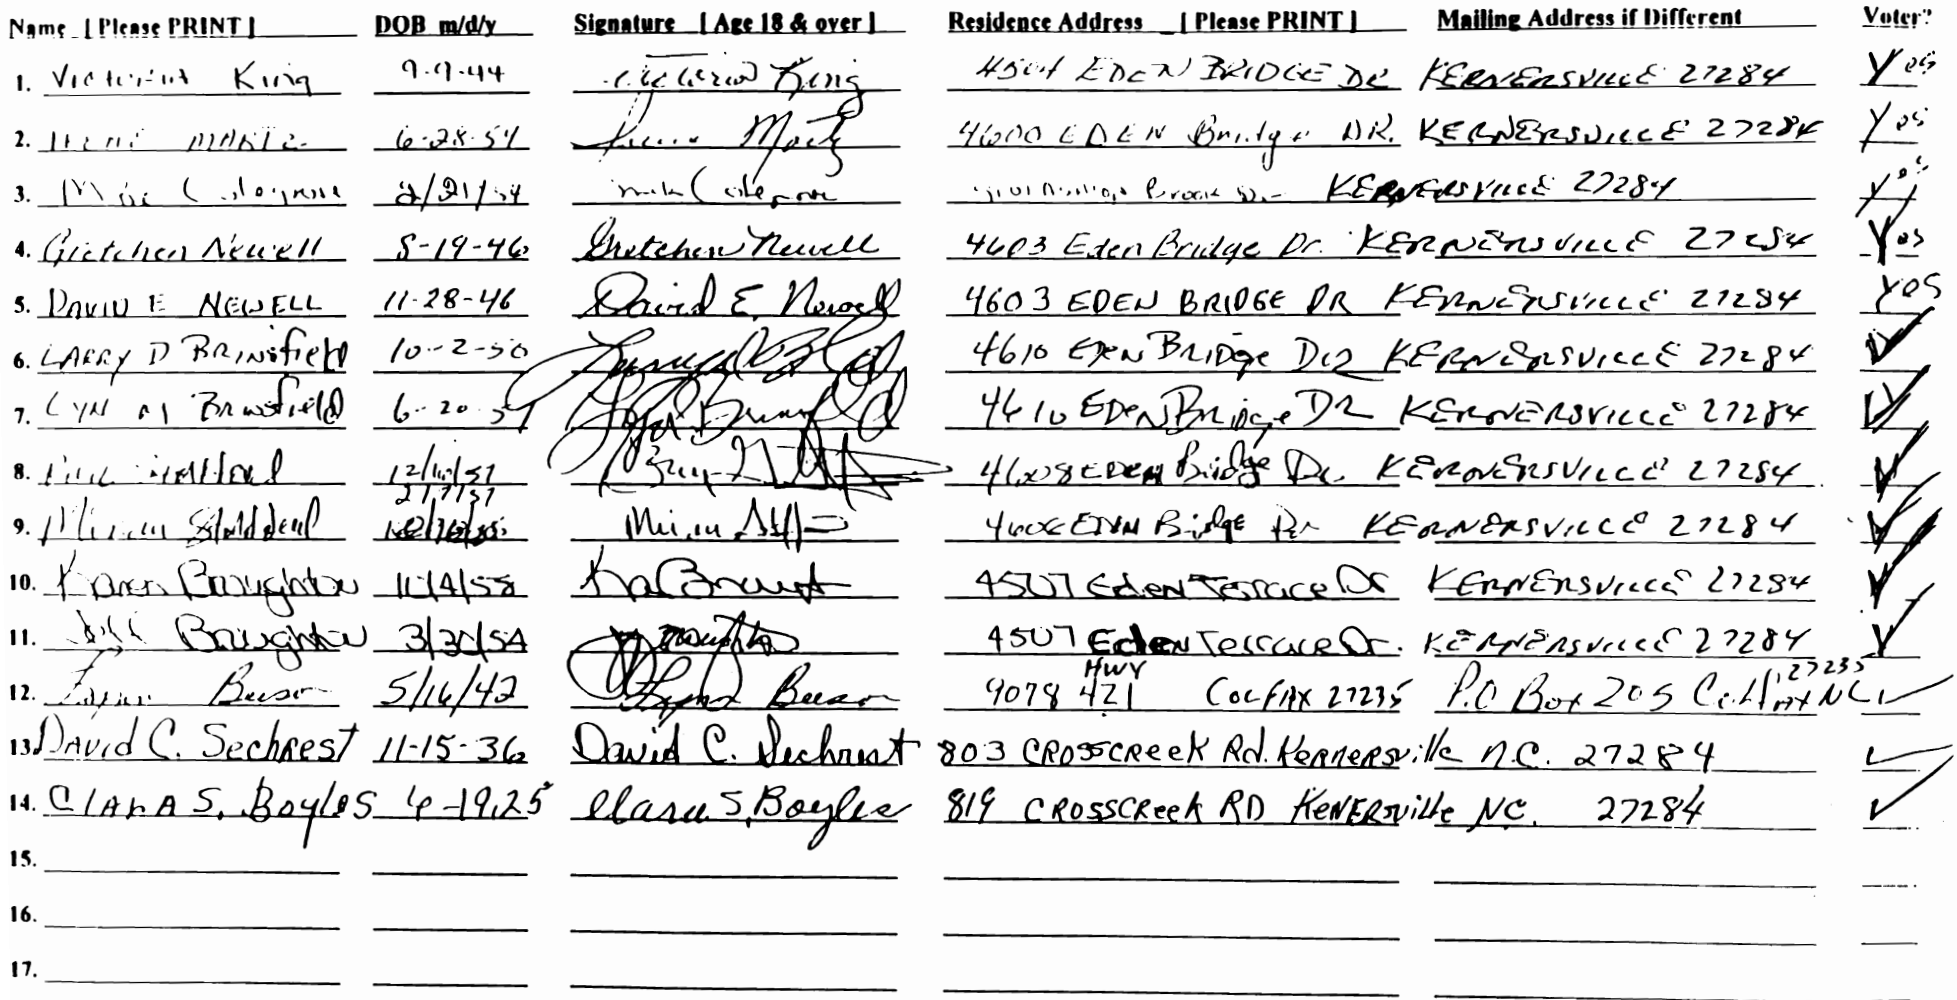 Name [ Please PRINT ] DOB m/d/y Signature [ Age 18 & over ] Residence Address [ Please PRINT ] Mailing Address if Different Voter?
1. King 9-9-44 King 4504 EDEN BRIDGE DR KERNERSVILLE 27284 Yes
2. MARTZ 6-28-54 Martz 4600 EDEN Bridge DR. KERNERSVILLE 27284 Yes
3. 2/21/54 Brook KERNERSVILLE 27284 Yes
4. Gretchen Newell 8-19-46 Gretchen Newell 4603 Eden Bridge Dr. KERNERSVILLE 27284 Yes
5. DAVID E NEWELL 11-28-46 David E. Newell 4603 EDEN BRIDGE DR KERNERSVILLE 27284 Yes
6. LARRY D BRINSfiElD 10-2-50 4610 EDEN BRidge DR KERNERSVILLE 27284
7. LYN M BRINSfielD 6-20-51 4610 EDEN BRidge DR KERNERSVILLE 27284
8. 4608 EDEN Bridge Dr. KERNERSVILLE 27284
2/7/57
9. 4608 EDEN Bridge Dr KERNERSVILLE 27284
10. Karen Broughton 11/4/58 4507 Eden Terrace Dr KERNERSVILLE 27284
11. Broughton 3/30/54 4507 Eden Terrace Dr. KERNERSVILLE 27284
12. Beeson 5/16/42 Beeson 9078 HWY 421 COLFAX 27235 P.O Box 205 Colfax NC 27235
13. DAVID C. Sechrest 11-15-36 David C. Sechrest 803 CROSSCREEK Rd. Kernersville N.C. 27284
14. ClARA S. Boyles 4-19,25 Clara S, Boyles 819 CROSSCREEK RD KENERSVille NC. 27284
15.
16.
17.